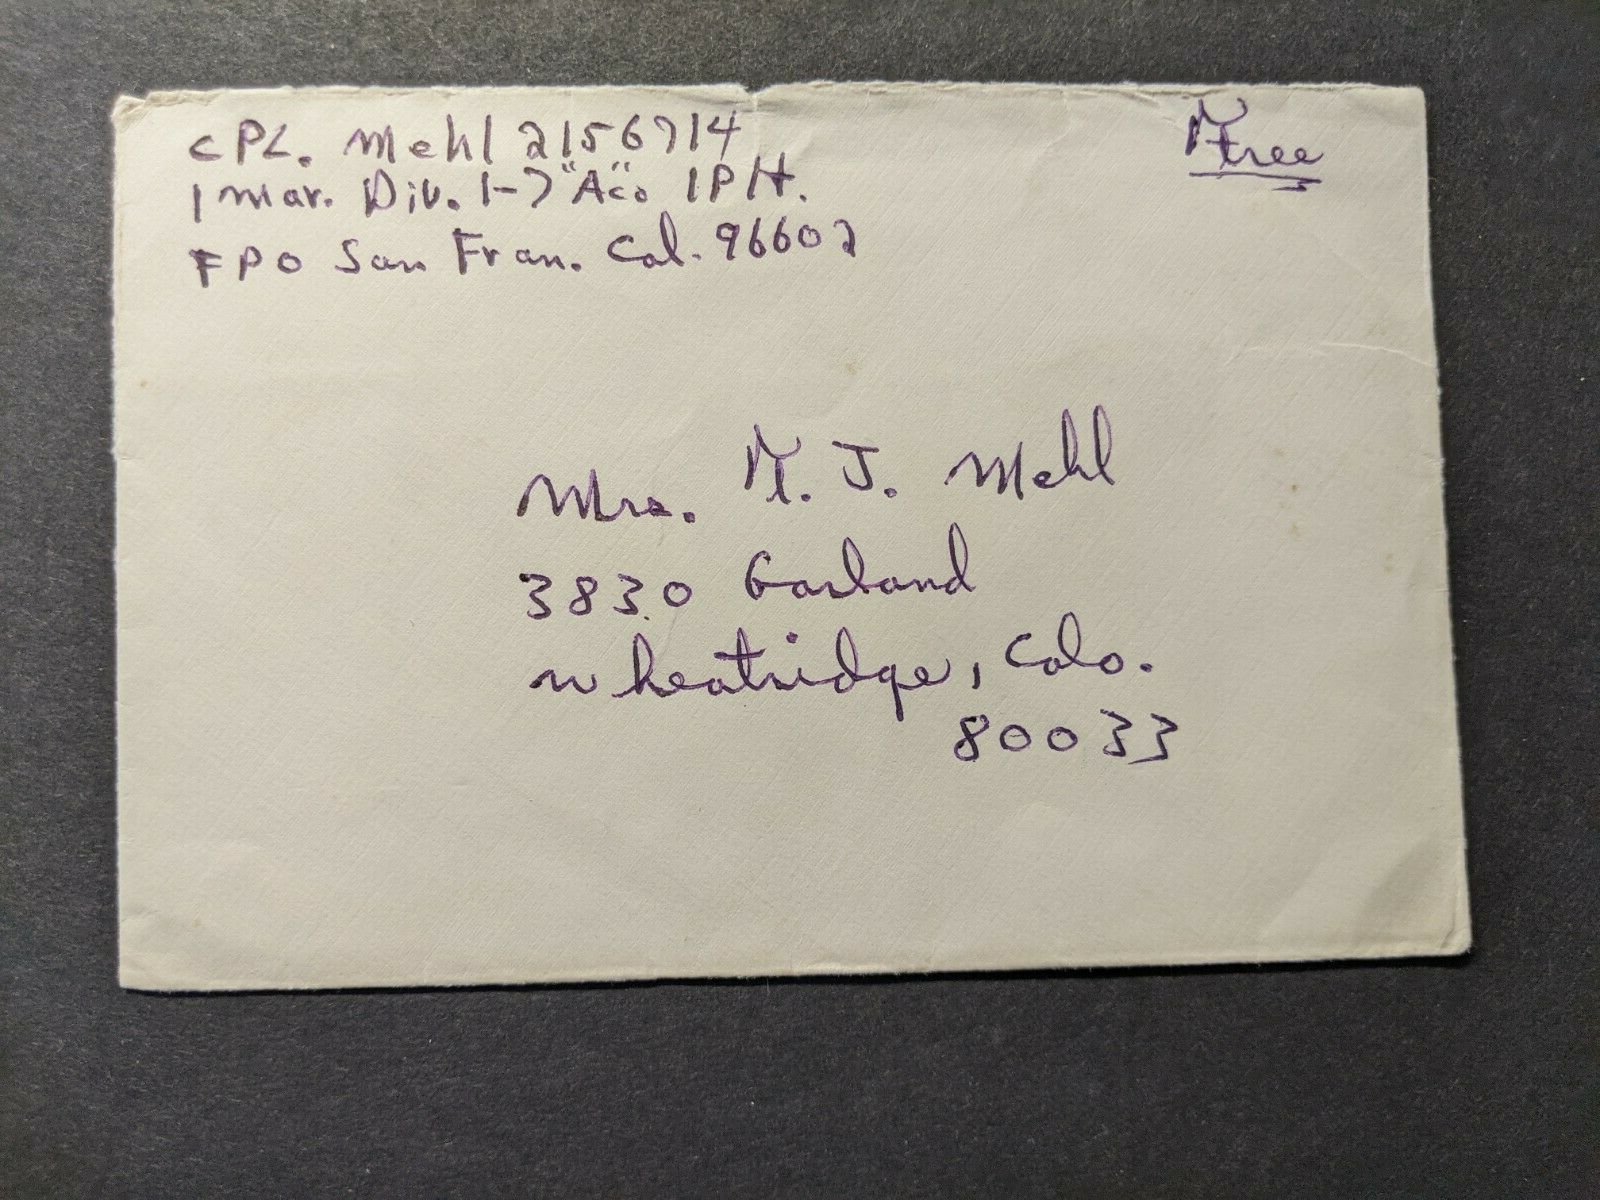 CPL. Mehl 2156714
1 Mar. Div. 1-7 "A" Co. 1 Plt.
FPO San Fran. Cal. 96602
Free
Mrs. F. J. Mehl
3830 Garland
Wheatridge, Colo.
80033